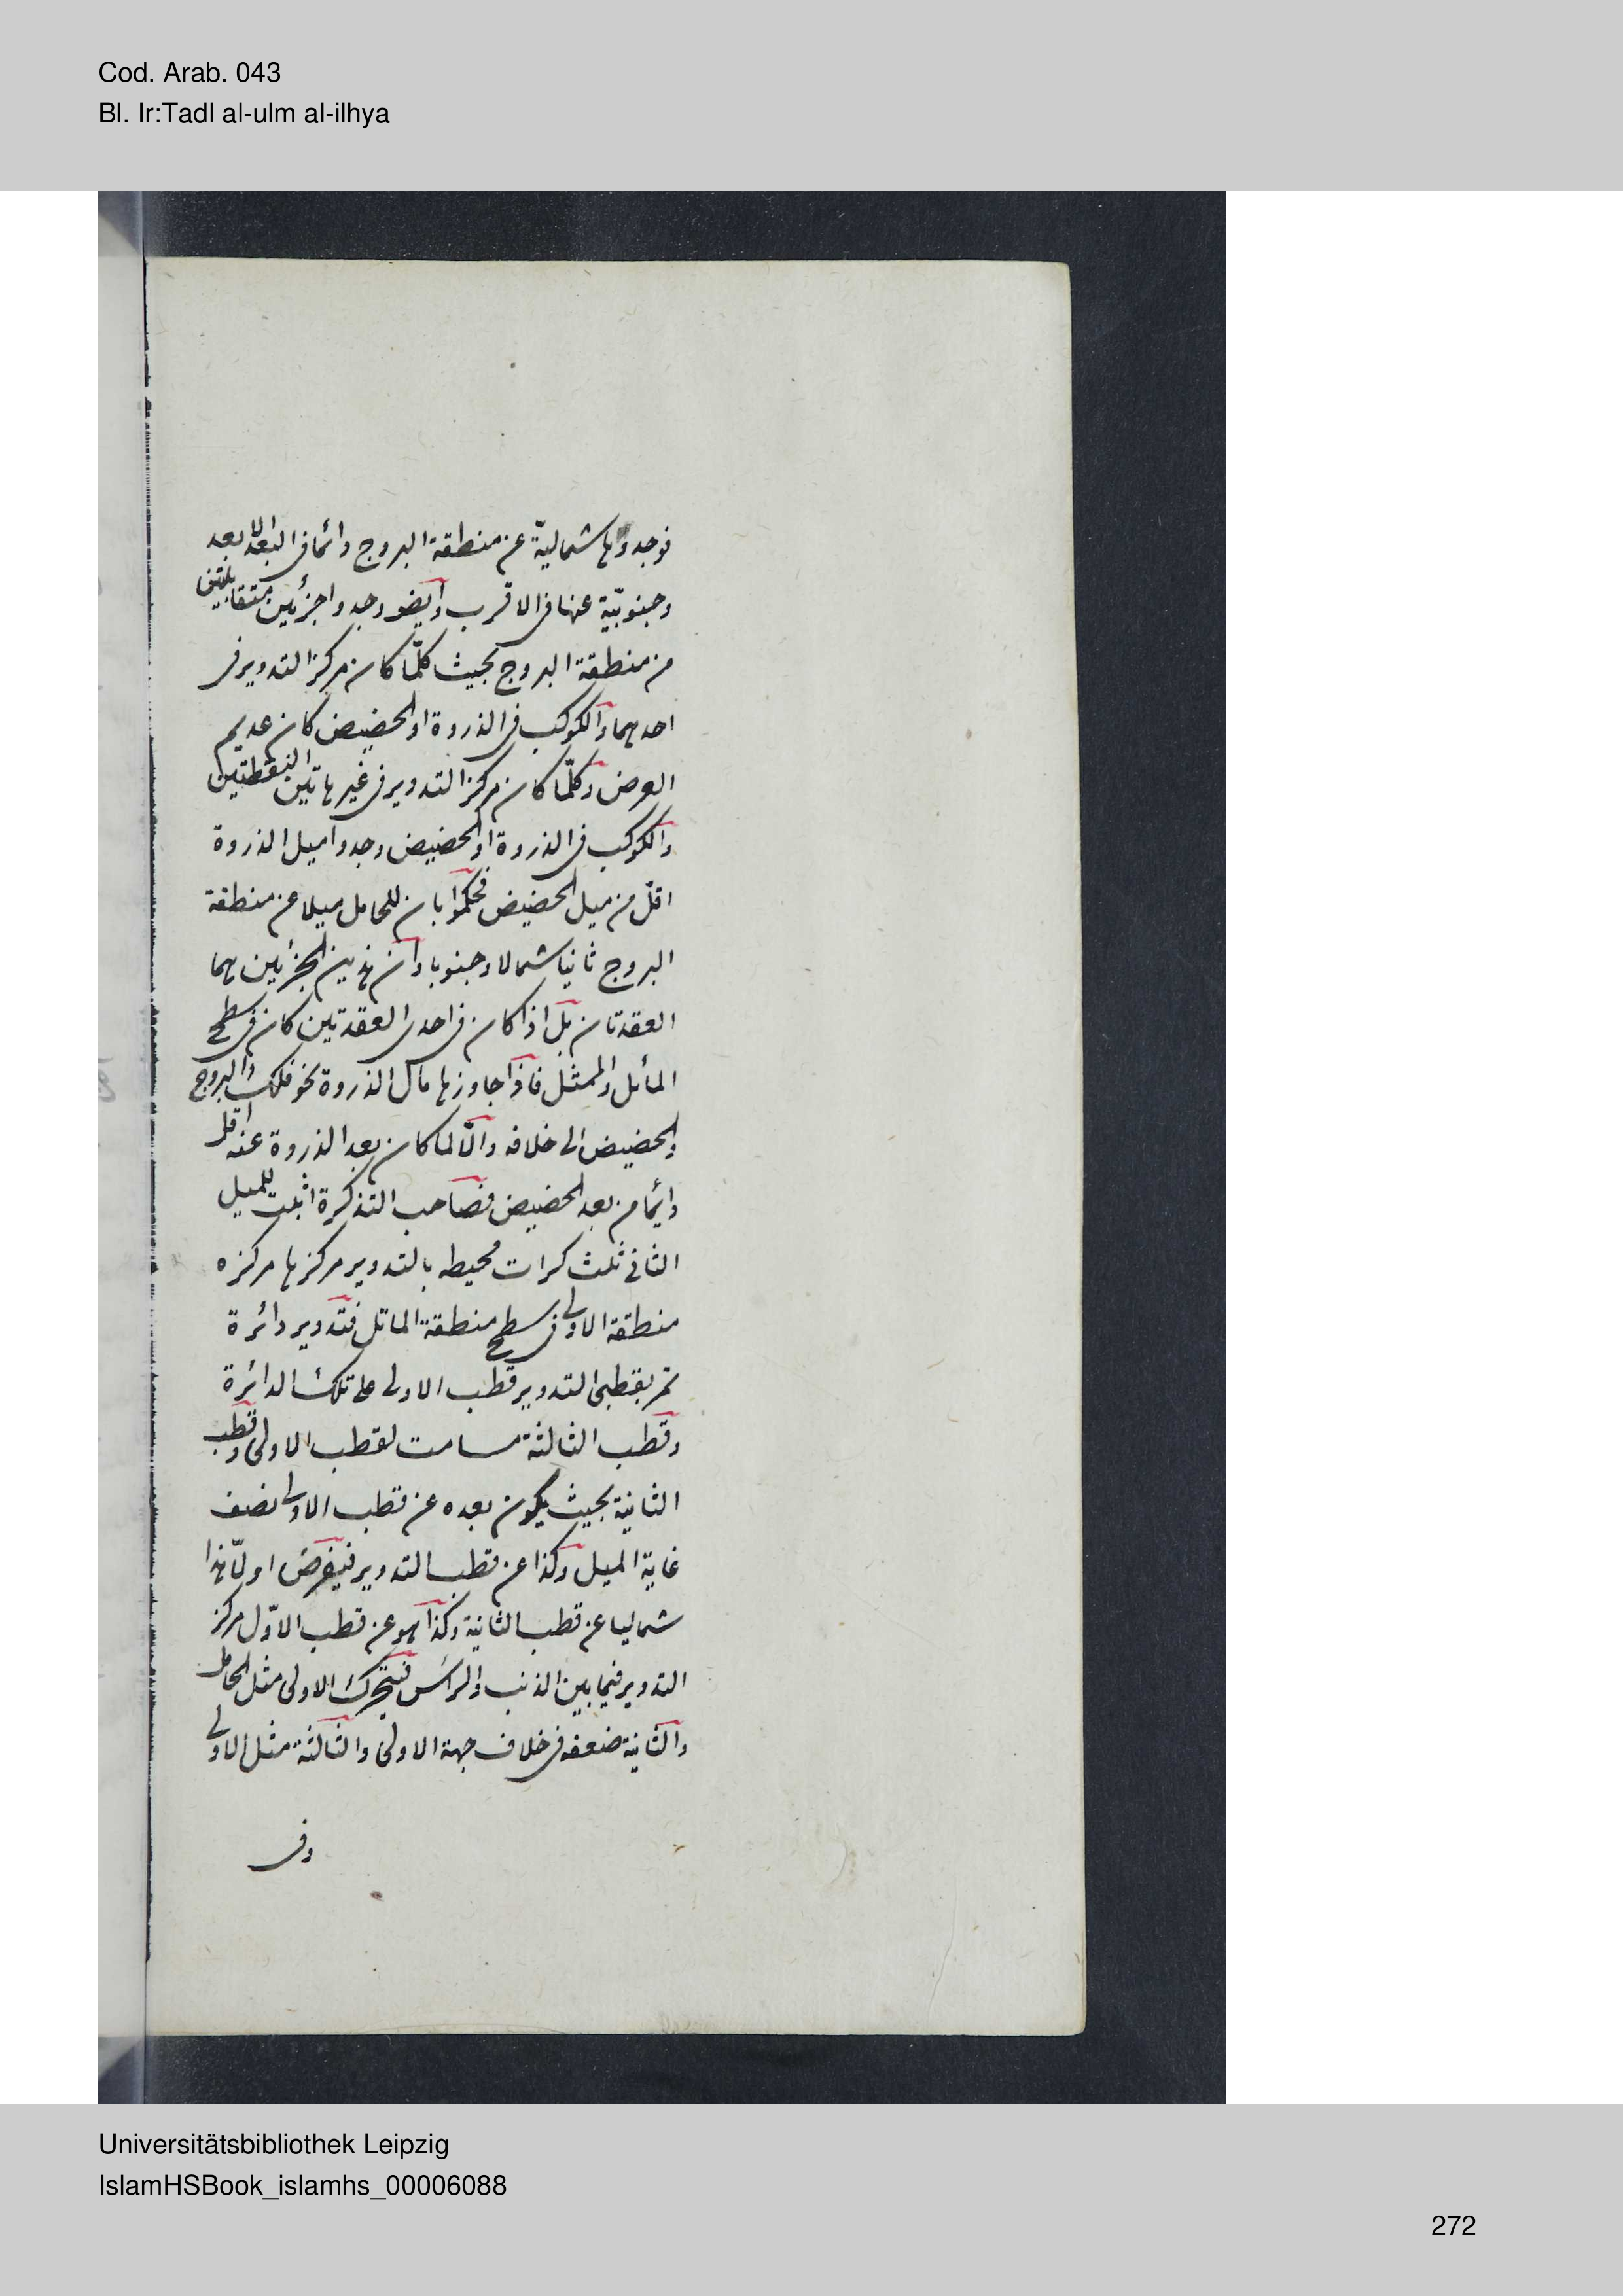 Cod. Arab. 043
Bl. Ir:Tadl al-ulm al-ilhya
فوجدوها شماليّة عن منطقة البروج دائما فى البعد الابعد
وجنوبيّة عنها فى الاقرب وايضو وجدوا جزئين متقابلتين
من منطقة البروج بحيث كلّما كان مركز التدوير فى
احدهما والكوكب فى الذروة او الحضيض كان عديم
العرض وكلّما كان مركز التدوير فى غير هاتين النقطتين
والكوكب فى الذروة او الحضيض وجدوا ميل الذروة
اقلّ من ميل الحضيض فحكموا بان للحامل ميلا عن منطقة
البروج ثانيا شمالا وجنوبا وان هذين الجزئين هما
العقدتان بل اذا كان فى احدى العقدتين كان فى سطح
المائل والممثل فاذا جاوزها مال الذروة نحو فلك البروج
والحضيض الى خلافه والّا لما كان بعد الذروة عنه اقل
دائما من بعد الحضيض فصاحب التذكرة اثبت للميل
الثانى ثلث كرات محيطه بالتدوير مركزها مركزه
منطقة الاولى فى سطح منطقة المائل فتدوير دائرة
تمر بقطبى التدوير قطب الاولى على تلك الدائرة
وقطب الثالثة مسامت لقطب الاولى وقطب
الثانية بحيث يكون بعده عن قطب الاولى نصف
غاية الميل وكذا عن قطب التدوير فيفرض اولّا هذا
شماليا عن قطب الثانية وكذا هو عن قطب الاوّل مركز
التدوير فيما بين الذنب والراس فيتحرك الاولى مثل الحامل
والثانية ضعفه فى خلاف جهة الاولى والثالثة مثل الاولى
وفى
Universitätsbibliothek Leipzig
IslamHSBook_islamhs_00006088
272